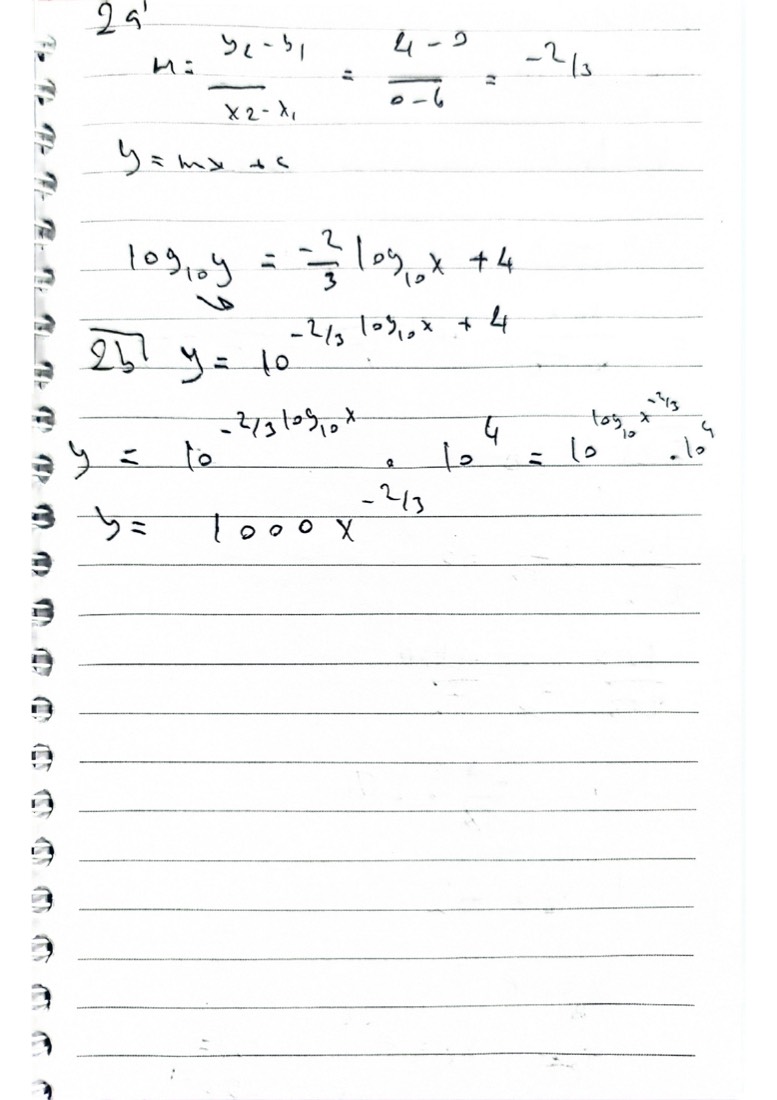 2a
M = y₂ - y₁ / x₂ - x₁ = 4 - 0 / 0 - 6 = -2/3
y = mx + c
log₁₀y = -2/3 log₁₀x + 4
2b y = 10^(-2/3 log₁₀x + 4)
y = 10^(-2/3 log₁₀x) . 10^4 = 10^(log₁₀x^(-2/3)) . 10^4
y = 1000x^(-2/3)